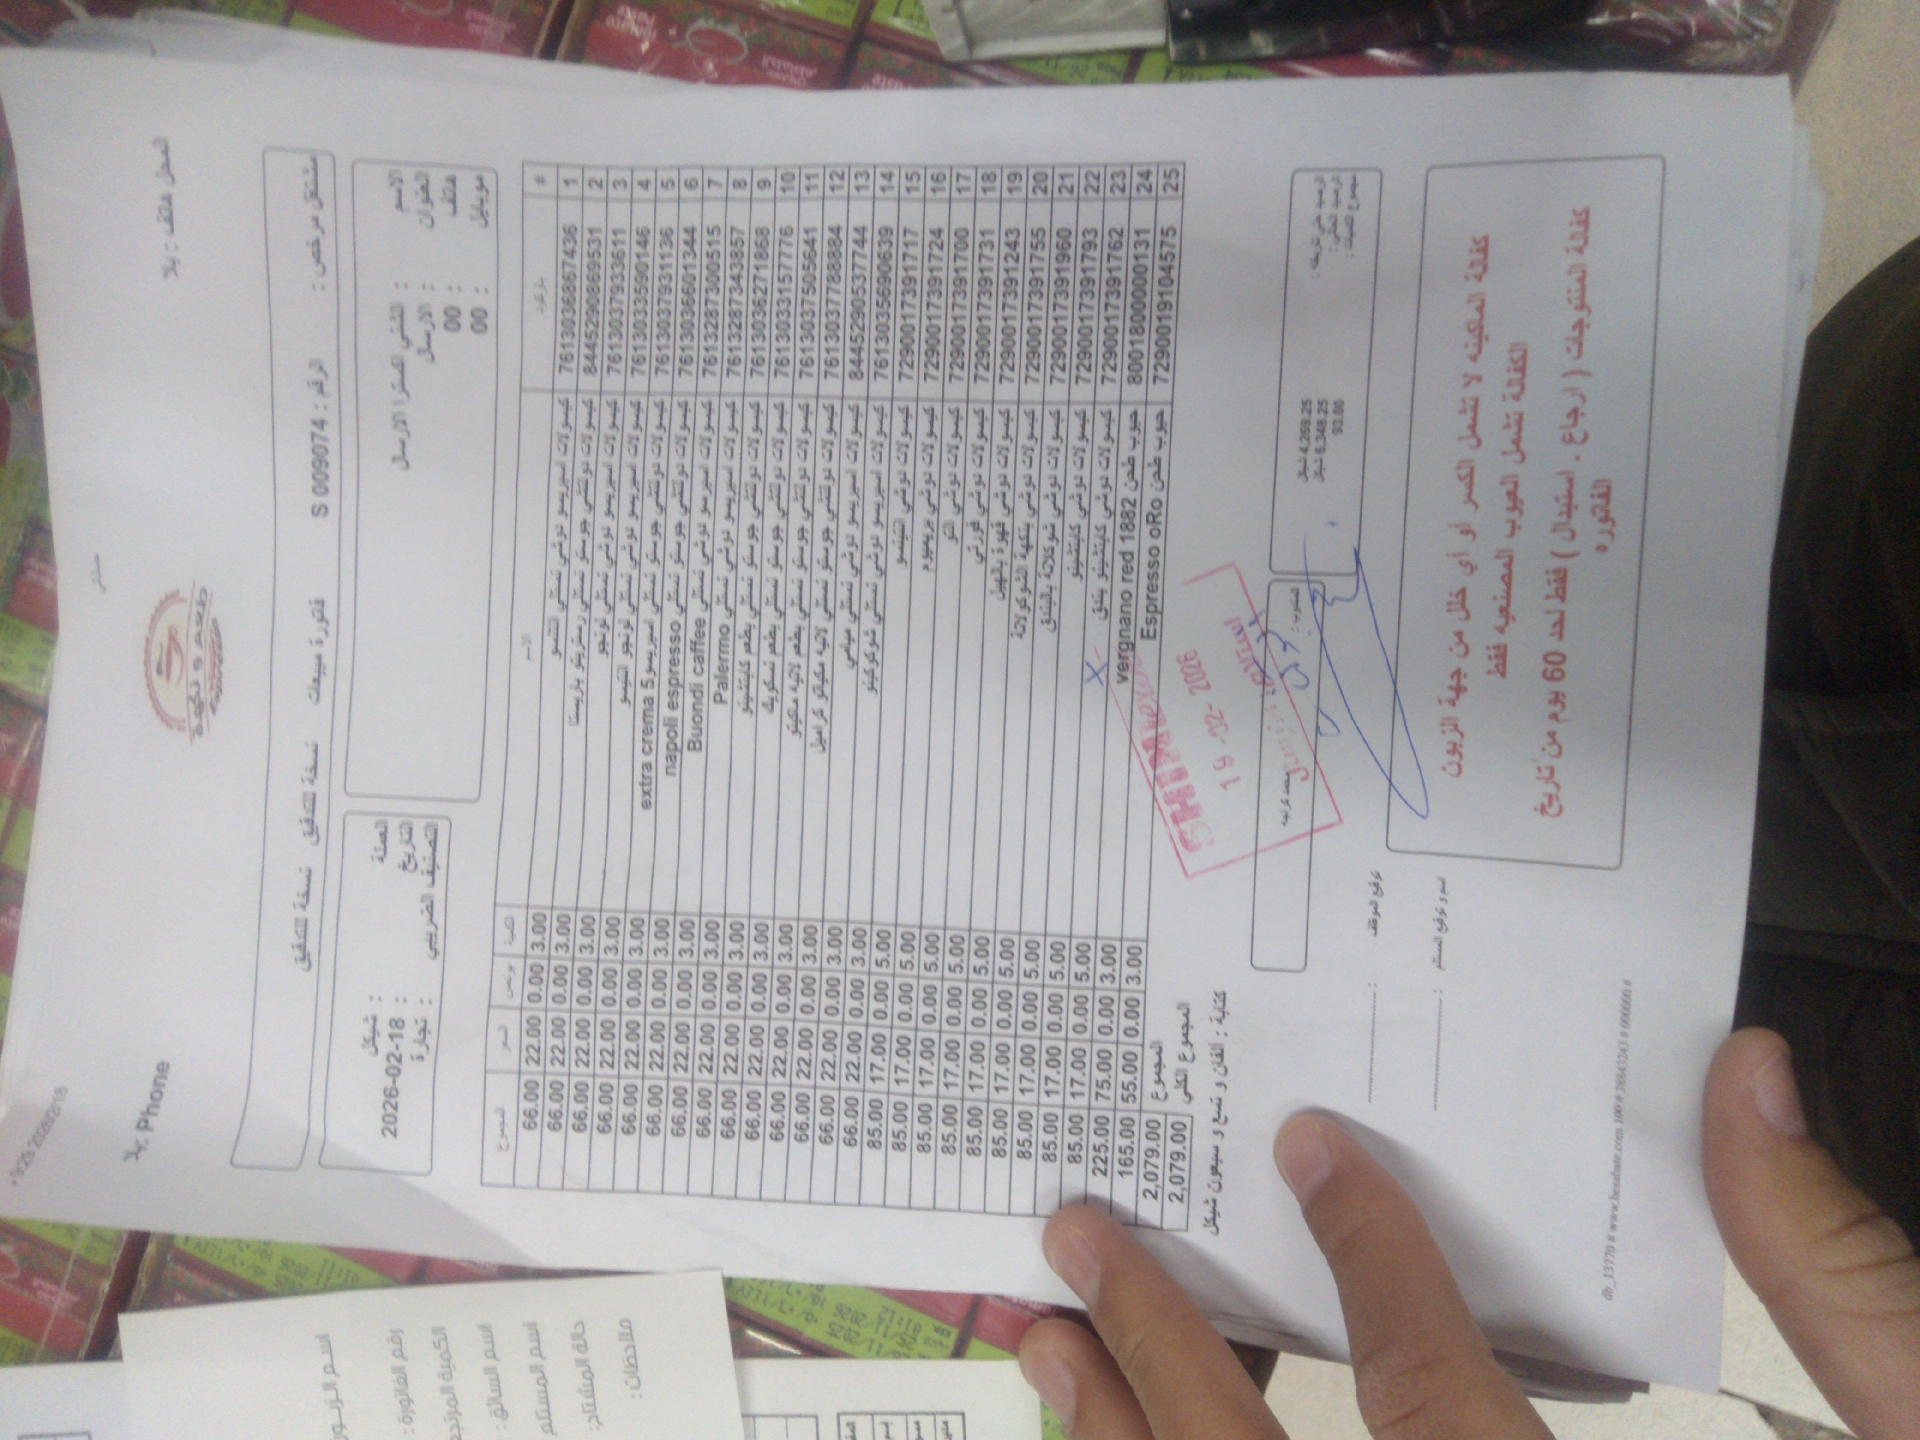 المحل هاتف : يلا
يلا: Phone
طعم و نكهة
مشتغل مرخص :
الرقم : S 009074
فاتورة مبيعات
نسخة للتدقيق
نسخة للتدقيق
الاسم :
العنوان : الارسال
هاتف : 00
موبايل : 00
العملة : شيكل
التاريخ : 2026-02-18
التصنيف الضريبي : تجارة
# باركود الاسم الكمية بونص السعر المجموع
1 7613036867436 كبسولات اسبريسو دوشي نستلي 3.00 0.00 22.00 66.00
2 8445290869531 كبسولات دولتشي جوستو نستلي ريستريتو باريستا 3.00 0.00 22.00 66.00
3 7613037933611 كبسولات اسبريسو دوشي نستلي لونجو 3.00 0.00 22.00 66.00
4 7613033590146 كبسولات اسبريسو دوشي نستلي لونجو 3.00 0.00 22.00 66.00
5 7613037931136 كبسولات دولتشي جوستو نستلي اسبريسو extra crema 5 3.00 0.00 22.00 66.00
6 7613036601344 كبسولات دولتشي جوستو نستلي napoli espresso 3.00 0.00 22.00 66.00
7 7613287300515 كبسولات اسبريسو دوشي نستلي Buondi caffee 3.00 0.00 22.00 66.00
8 7613287343857 كبسولات اسبريسو دوشي نستلي Palermo 3.00 0.00 22.00 66.00
9 7613036271868 كبسولات دولتشي جوستو نستلي بطعم كابتشينو 3.00 0.00 22.00 66.00
10 7613033157776 كبسولات دولتشي جوستو نستلي بطعم نسكويك 3.00 0.00 22.00 66.00
11 7613037505641 كبسولات دولتشي جوستو نستلي بطعم لاتيه ماكيتو 3.00 0.00 22.00 66.00
12 7613037788884 كبسولات دولتشي جوستو نستلي لاتيه مكياتو كراميل 3.00 0.00 22.00 66.00
13 8445290537744 كبسولات اسبريسو دوشي نستلي ميامي 3.00 0.00 22.00 66.00
14 7613035690639 كبسولات اسبريسو دوشي نستلي شوكوكينو 3.00 0.00 22.00 66.00
15 7290017391717 كبسولات دوشي 5.00 0.00 17.00 85.00
16 7290017391724 كبسولات دوشي بريميوم 5.00 0.00 17.00 85.00
17 7290017391700 كبسولات دوشي 5.00 0.00 17.00 85.00
18 7290017391731 كبسولات دوشي فورتي 5.00 0.00 17.00 85.00
19 7290017391243 كبسولات دوشي قهوة بالهيل 5.00 0.00 17.00 85.00
20 7290017391755 كبسولات دوشي بنكهة الشوكولاتة 5.00 0.00 17.00 85.00
21 7290017391960 كبسولات دوشي شوكلاتة بالبندق 5.00 0.00 17.00 85.00
22 7290017391793 كبسولات دوشي كابتشينو 5.00 0.00 17.00 85.00
23 7290017391762 كبسولات دوشي كابتشينو بندق 5.00 0.00 17.00 85.00
24 8001800000131 حبوب طحن vergnano red 1882 3.00 0.00 75.00 225.00
25 7290019104575 حبوب طحن Espresso oRo 3.00 0.00 55.00 165.00
المجموع 2,079.00
المجموع الكلي 2,079.00
كتابة : الفان و تسع و سبعون شيكل
4,269.25 شيكل
الرصيد الكلي : 6,348.25 شيكل
مجموع الكميات : 93.00
19-02-2026
توقيع الموظف :
اسم و توقيع المستلم :
كفالة الماكينه لا تشمل الكسر أو أي خلل من جهة الزبون
الكفالة تشمل العيوب المصنعيه فقط
كفالة المنتوجات ( ارجاع , استبدال ) فقط لحد 60 يوم من تاريخ
الفاتوره
اسم الزبون
رقم الفاتورة :
اسم السائق :
اسم المستلم
ملاحظات :